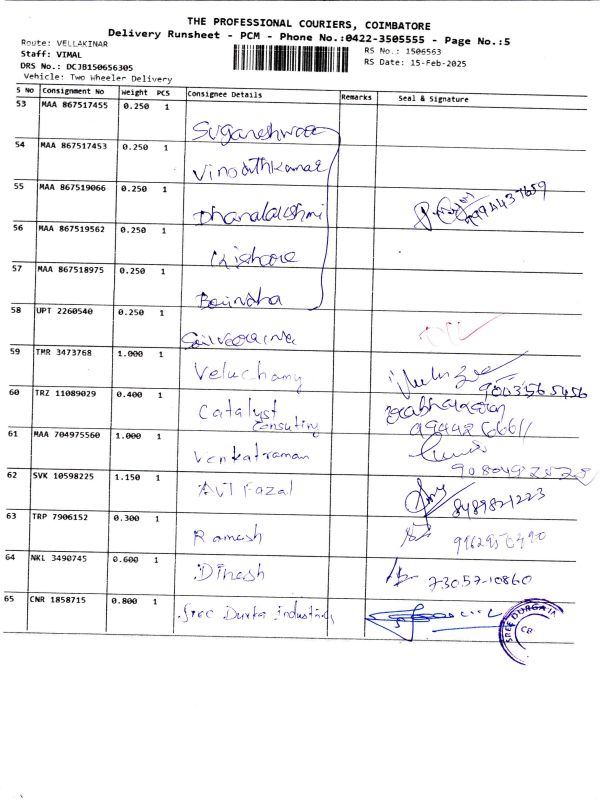 THE PROFESSIONAL COURIERS, COIMBATORE
Delivery Runsheet - PCM - Phone No.:0422-3505555 - Page No.:5
Route: VELLAKINAR
RS No.: 1506563
Staff: VIMAL
RS Date: 15-Feb-2025
DRS No.: DCJB150656305
Vehicle: Two Wheeler Delivery
S No Consignment No Weight PCS Consignee Details Remarks Seal & Signature
53 MAA 867517455 0.250 1
54 MAA 867517453 0.250 1 Vinodthkumar
55 MAA 867519066 0.250 1 Dhanalakshmi
56 MAA 867519562 0.250 1 Kishore
57 MAA 867518975 0.250 1
58 UPT 2260540 0.250 1
59 TMR 3473768 1.000 1 Veluchamy 9003565456
60 TRZ 11089029 0.400 1 Catalyst
Consulting
61 MAA 704975560 1.000 1 Venkatraman
62 SVK 10598225 1.150 1 Fazal 8489821223
63 TRP 7906152 0.300 1 Ramesh
64 NKL 3490745 0.600 1 Dinesh 73057-10860
65 CNR 1858715 0.800 1 Sree Durka industries
SREE DURGA
CB